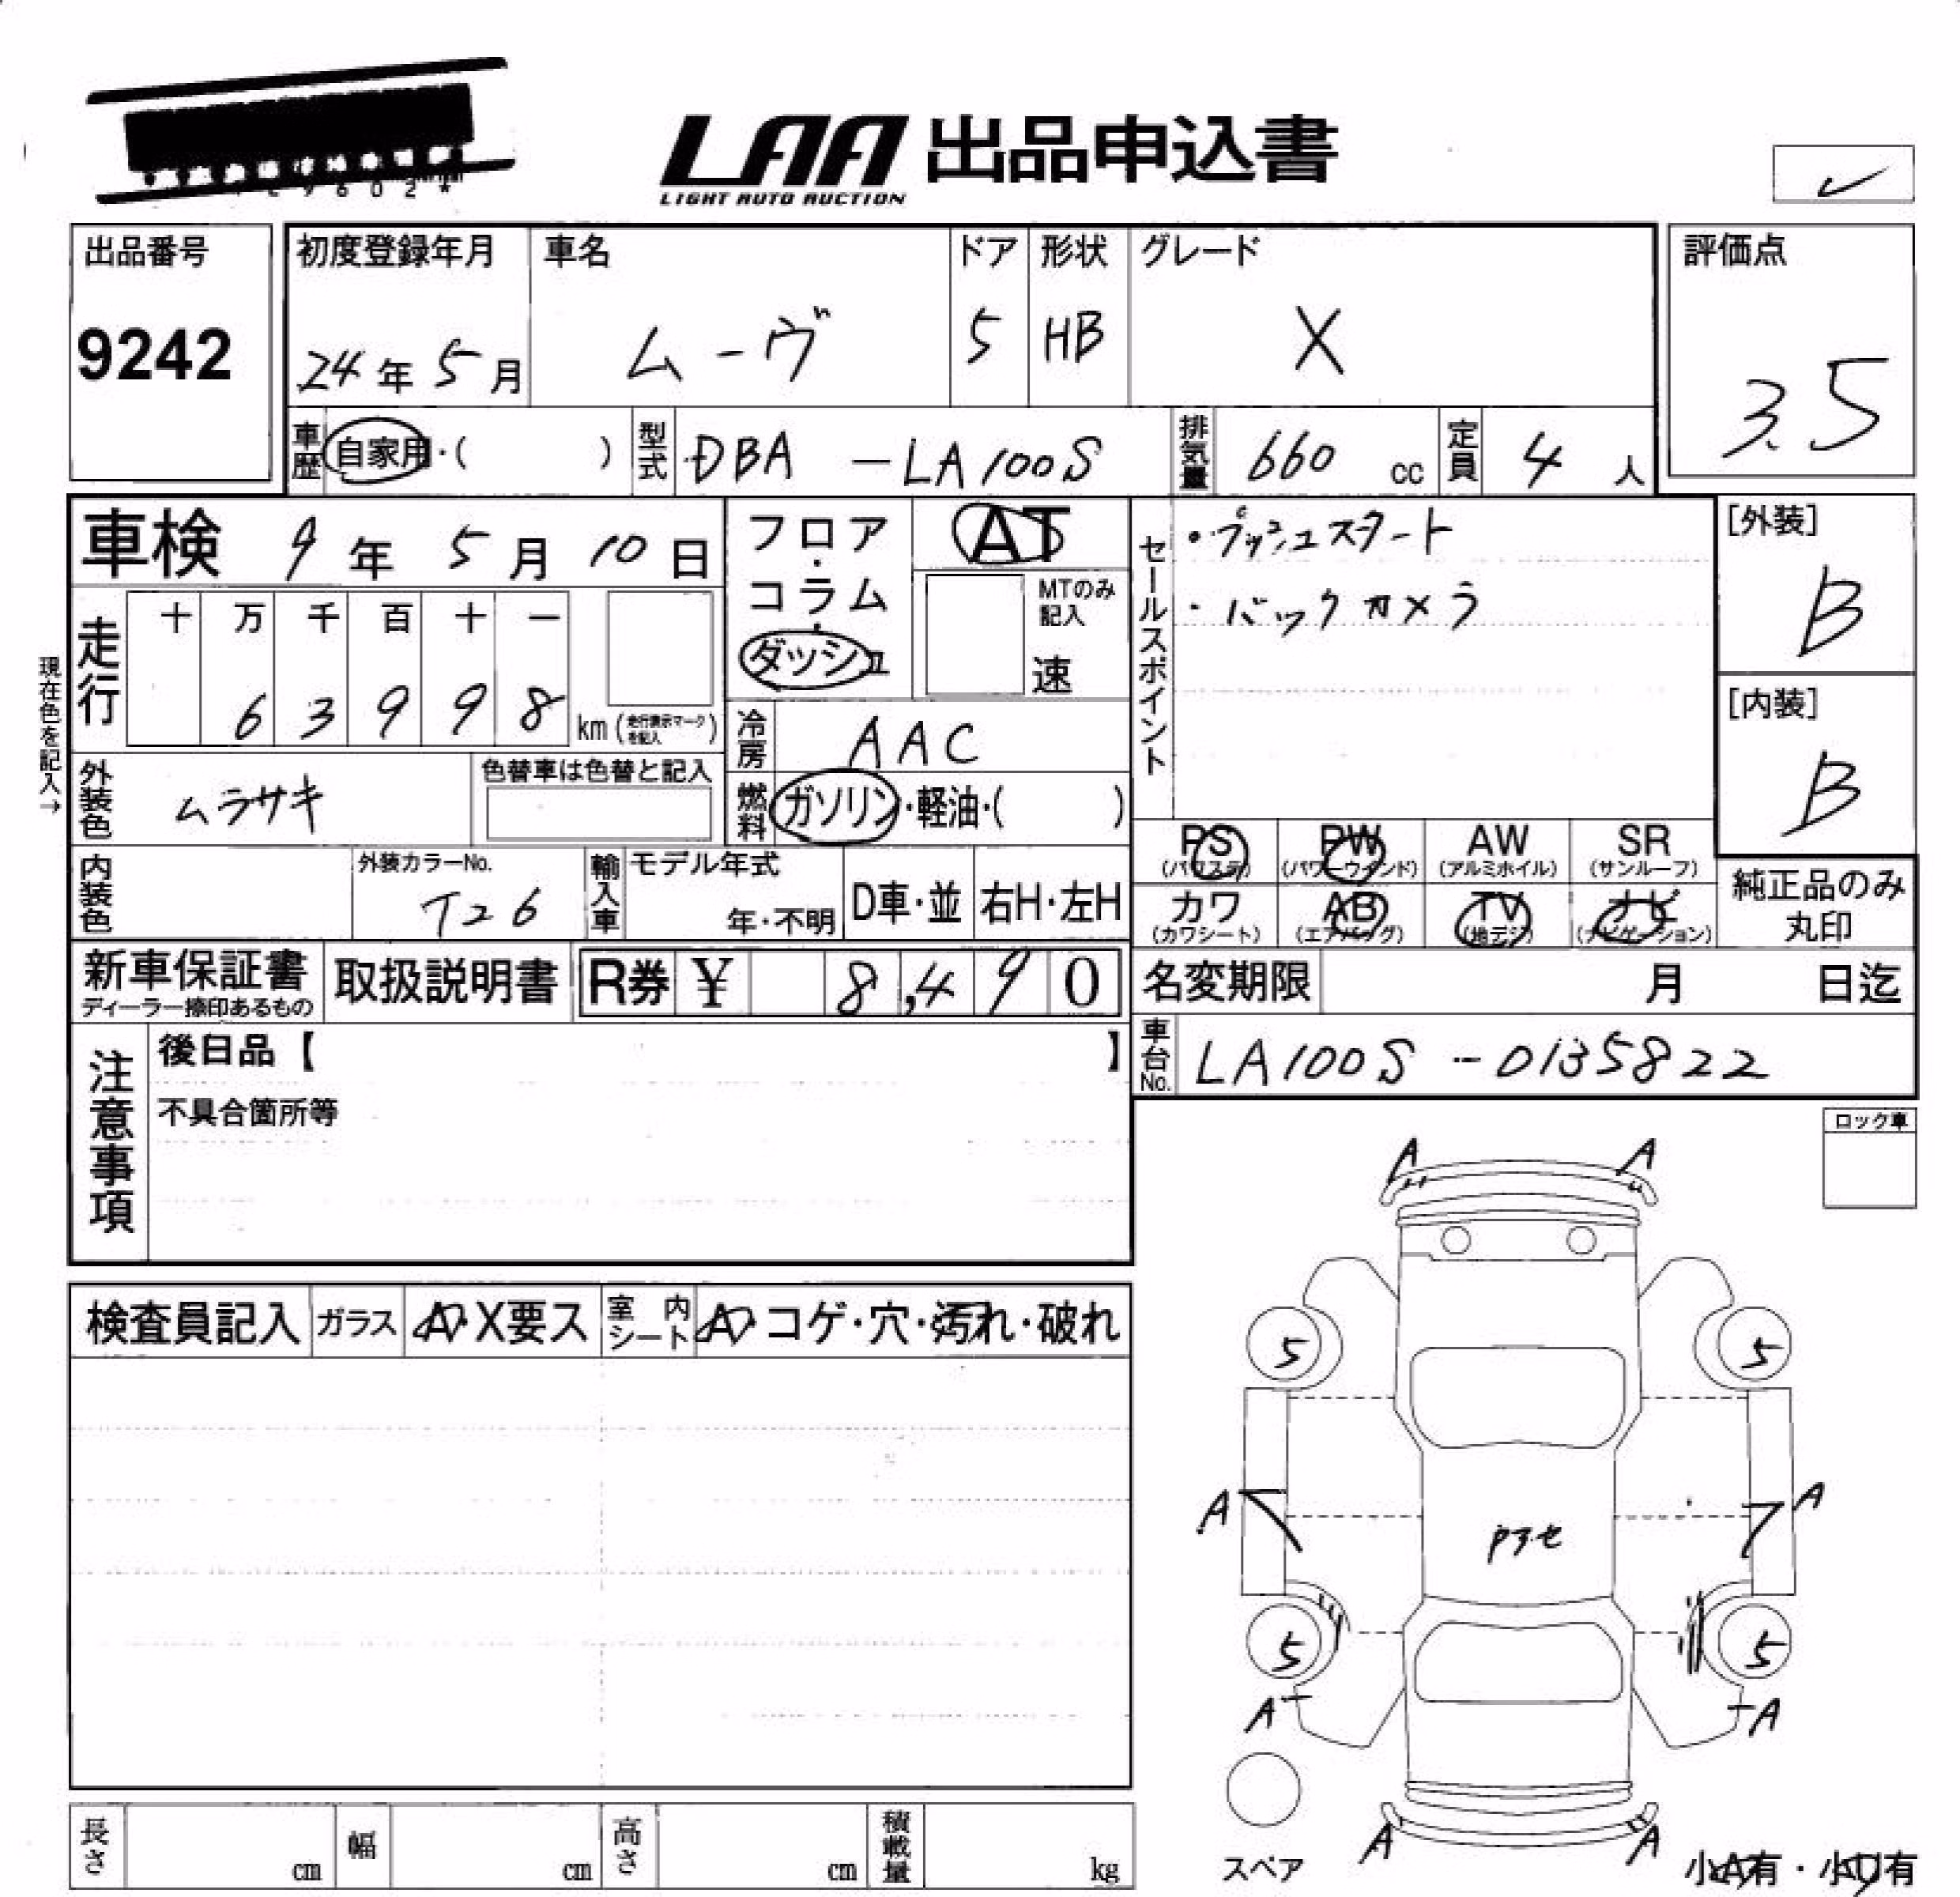 9602*
LAA 出品申込書
LIGHT AUTO AUCTION
出品番号
9242
初度登録年月
24年 5月
車名
ムーヴ
ドア
5
形状
HB
グレード
X
評価点
3.5
車歴
自家用・( )
型式
DBA -LA100S
排気量
660 cc
定員
4 人
車検 9年 5月 10日
フロア・コラム・ダッシュ
AT
MTのみ記入
速
セールスポイント
・プッシュスタート
・バックカメラ
[外装]
B
[内装]
B
現在色を記入→
走行
十 万 千 百 十 一
6 3 9 9 8 km (走行表示マークを記入)
冷房
AAC
外装色
ムラサキ
色替車は色替と記入
燃料
ガソリン・軽油・( )
PS (パワステ) PW (パワーウインド) AW (アルミホイル) SR (サンルーフ)
カワ (カワシート) AB (エアバッグ) TV (地デジ) ナビ (ナビゲーション)
純正品のみ丸印
内装色
外装カラーNo.
T26
輸入車
モデル年式
年・不明
D車・並
右H・左H
新車保証書
ディーラー捺印あるもの
取扱説明書
R券 ¥ 8,490
名変期限 月 日迄
車台No.
LA100S -0135822
注意事項
後日品【 】
不具合箇所等
ロック車
検査員記入
ガラス
A・X要ス
室内シート
A・コゲ・穴・汚れ・破れ
A A
5 5
A A
5 5
A A
A A
スペア
小A有・小U有
長さ cm
幅 cm
高さ cm
積載量 kg